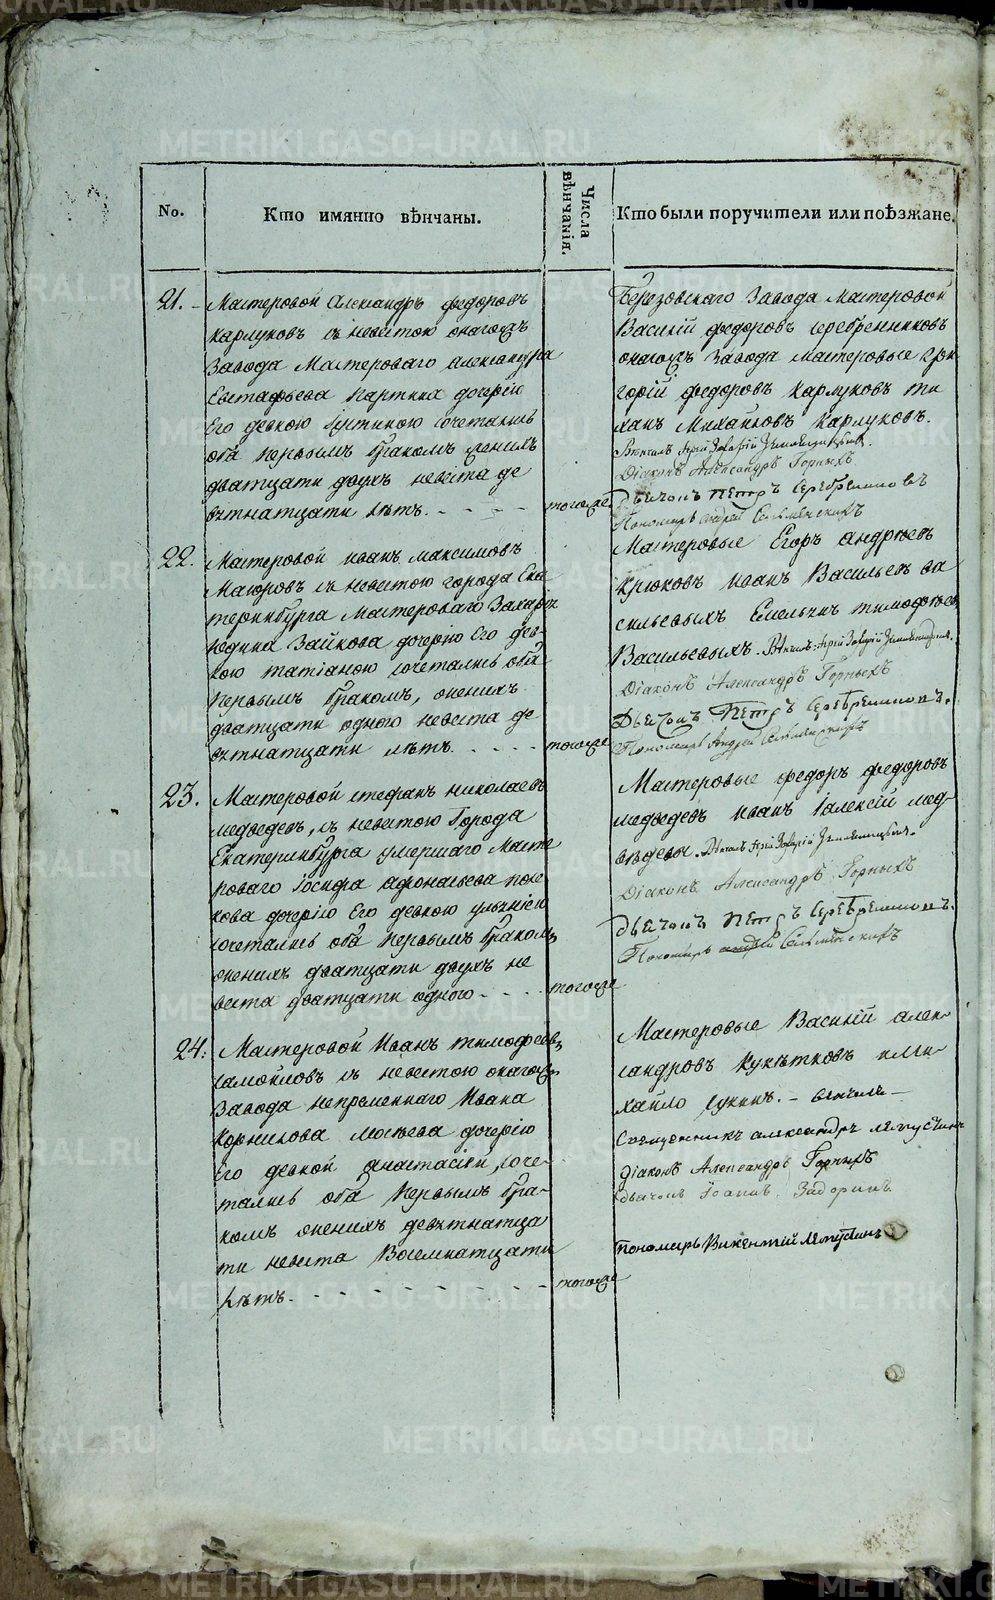 No.
Кто имянно вѣнчаны.
Числа вѣнчанія.
Кто были поручители или поѣзжане.
21. Мастеровой Александръ федоровъ
Карлуковъ съ невѣстою онагожъ
Завода Мастероваго александра
Евстафьева дочерію
Его девкою Іустиною сочетались
оба первымъ бракомъ женихъ
дватцати двухъ невѣста де
вятнатцати лѣтъ. тогожъ
Березовскаго Завода Мастеровой
Василій федоровъ серебренниковъ
онагожъ завода мастеровые гри
горій федоровъ Карлуковъ ти
Михайловъ Карлуковъ.
Вѣнчалъ Іерей Захарій
Діаконъ Александръ Горныхъ
Дьячокъ Петръ Серебренниковъ
Пономарь Андрей
22. Мастеровой иванъ максимовъ
Маюровъ съ невѣстою города Ека
теринбурга Мастероваго Захара
Зайкова дочерію Его дев-
кою татіаною сочетались оба
первымъ бракомъ, женихъ
дватцати одного невѣста де
вятнатцати лѣтъ. тогоже
Мастеровые Егоръ андреевъ
Крюковъ иванъ Васильевъ ва
сильевыхъ Емельянъ тимофеевъ
Васильевыхъ. Вѣнчалъ Іерей Захарій
Діаконъ Александръ Горныхъ
Дьячокъ Петръ Серебренниковъ.
Пономарь Андрей
23. Мастеровой стефанъ николаевъ
медведевъ, съ невѣстою Города
Екатеринбурга умершаго Масте
роваго Іосифа афонасьева поле
кова дочерію Его девкою
сочетались оба первымъ бракомъ
женихъ дватцати двухъ не
веста дватцати одного. тогоже
Мастеровые федоръ федоровъ
медведевъ иванъ Іалексій мед-
ведевы. Вѣнчалъ Іерей Захарій
Діаконъ Александръ Горныхъ
Дьячокъ Петръ Серебренниковъ.
Пономарь андрей
24. Мастеровой Иванъ тимофеевъ
самойловъ съ невѣстою онагожъ
Завода непременнаго Ивана
Корнилова дочерію
Его девкой анастасіей соче-
тались оба первымъ бра-
комъ женихъ девятнатца
ти невѣста Восемнатцати
лѣтъ. тогоже
Мастеровые Василій алек-
сандровъ Кукътковъ и ми-
хайло сукинъ. - венчали -
Священникъ александръ ляпустинъ
Діаконъ Александръ Горныхъ
Дьячокъ Іоаннъ Задоринъ
Пономарь Викентій Ляпустинъ
METRIKI.GASO-URAL.RU